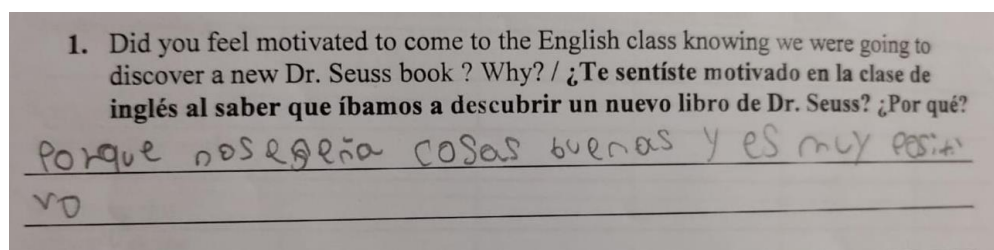 1. Did you feel motivated to come to the English class knowing we were going to
discover a new Dr. Seuss book ? Why? / ¿Te sentíste motivado en la clase de
inglés al saber que íbamos a descubrir un nuevo libro de Dr. Seuss? ¿Por qué?
Porque nos eseña cosas buenas y es muy positi
vo